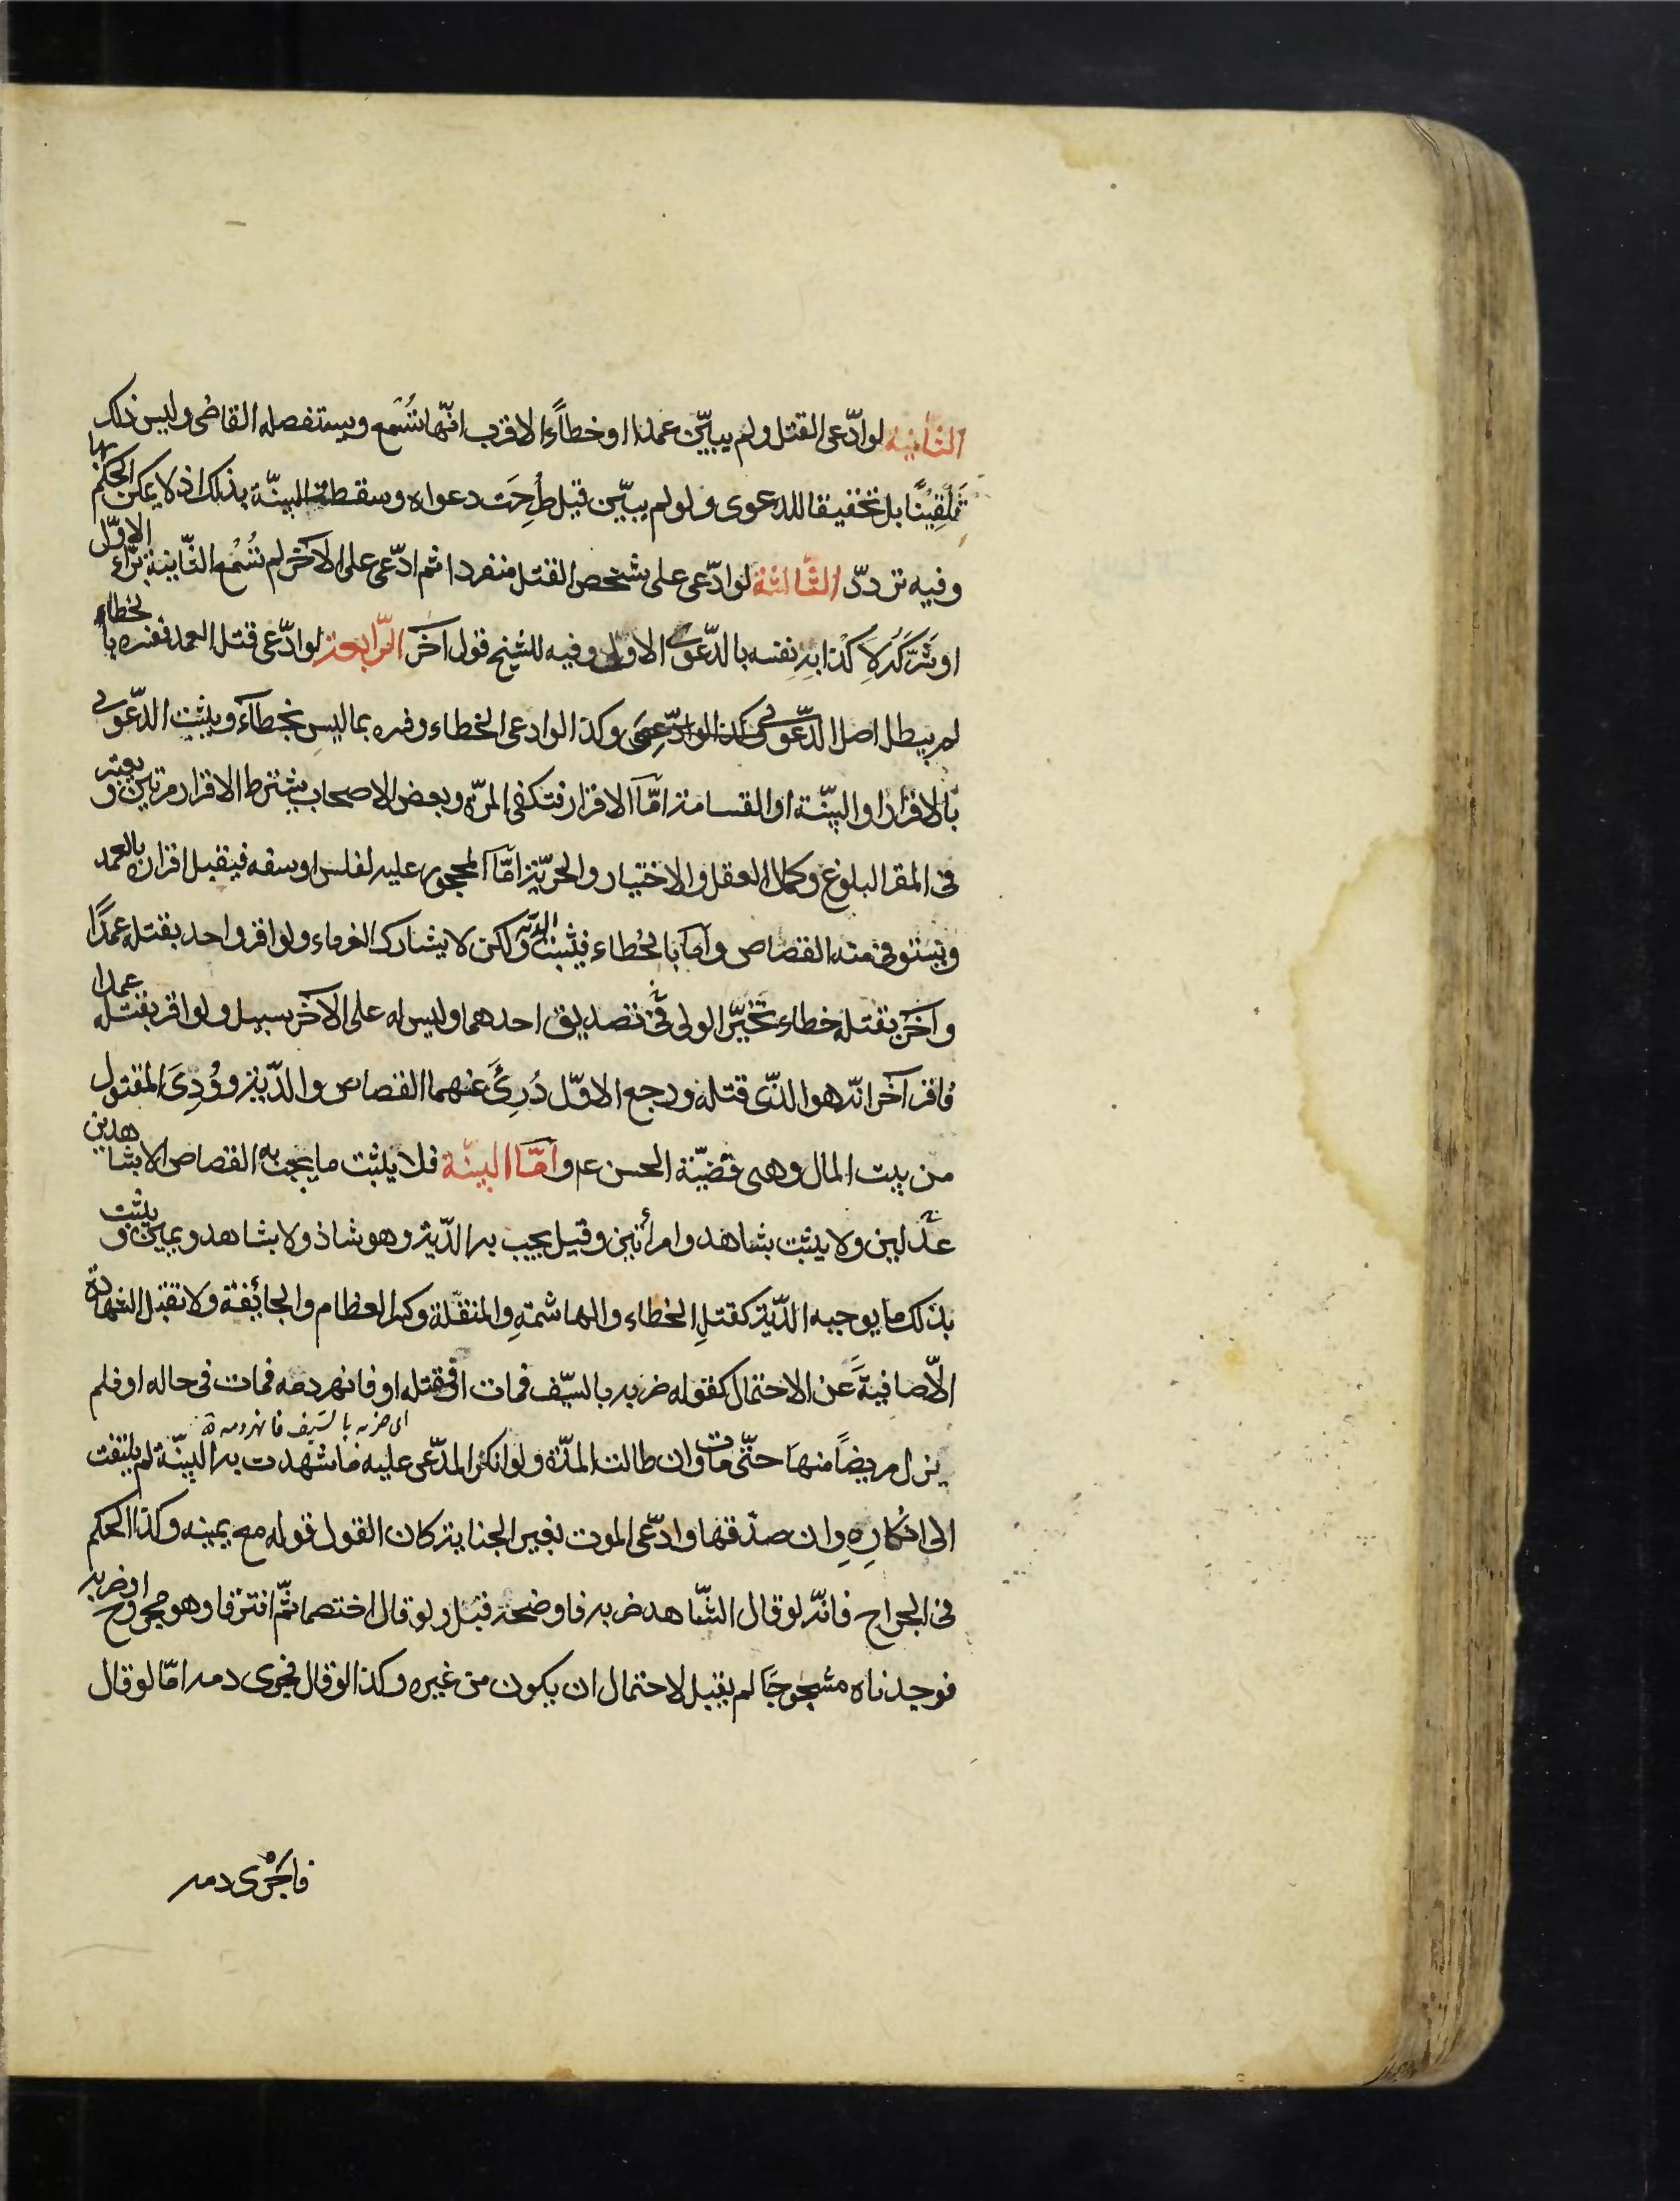 الثانية لو ادّعى القتل ولم يبيّن عمدا او خطاءً الاقرب انّها تُسْمَع ويستفصله القاضى وليس ذلك
تَلقِيْنًا بل تحقيقا للدعوى ولو لم يبيّن قيل طُرِحَت دعواه وسقطت البينّة بذلك اذ لا يمكن الحكم بها
وفيه تردّد الثّالثة لو ادّعى على شخص القتل منفردا ثم ادّعى على الآخر لم تُسْمَع الثّانية برّاء الاوّل
او شَرَّكَهُ لاِكذابِهِ نفسه بالدّعوى الاولى وفيه للشيخ قول آخَر الرّابعة لو ادّعى قتل العمد ففسره بالخطاء
لم يبطل اصل الدّعوى وكذا لو ادعى الخطاء وفسره بما ليس بخطاء ويثبت الدّعوى
بالاقرار او البيّنة او القسامة امّا الاقرار فتكفى المرّة وبعض الاصحاب يشترط الاقرار مرتين ويعتبر
فى المقر البلوغ وكمال العقل والاختيار والحريّة امّا المحجور عليه لفلس او سفه فيقبل اقراره بالعمد
ويستوفى منه القصاص وامّا بالخطاء فيثبت الدّية ولكن لا يشارك الغرماء ولو اقر واحد بقتله عمدًا
وآخَر بقتله خطاء تخيّر الولى فى تصديق احدهما وليس له على الآخر سبيل ولو اقر بقتله عمدا
فاقر آخر انّه هو الذّى قتله ورجع الاوّل دُرِئَ عنهما القصاص والدّية ووُدِىَ المقتول
من بيت المال وهى قضيّة الحسن ع م وامّا البينّة فلا يثبت ما يجب به القصاص الا بشاهدين
عدلين ولا يثبت بشاهد وامرأتين وقيل يجب به الدّية وهو شاذ ولا بشاهد ويمين ويثبت
بذلك ما يوجبه الدّية كقتلِ الخطاء والهاشمةِ والمنقّلة وكسر العظام والجائفة ولا تقبل الشهادة
الاّ صافيةً عَن الاحتمال كقوله ضربه بالسيّف فمات او فقتله او فانهر دمه فمات فى حاله او فلم
اى ضربه بالسيف فانهر دمه
يزل مريضاً منها حتّى مات وان طالت المدّة ولو انكر المدّعى عليه ما شهدت به البينّة لم يلتفت
الى انكارِهِ وان صدّقها وادّعى الموت بغير الجناية كان القول قوله مع يمينه وكذا الحكم
فى الجراح فانّه لو قال الشّاهد ضربه فاوضحه قبل ولو قال اختصما ثمّ افترقا وهو مجروح او ضربه
فوجدناه مشجوجًا لم يقبل لاحتمال ان يكون من غيره وكذا لو قال فجرى دمه امّا لو قال
فاجرى دمه